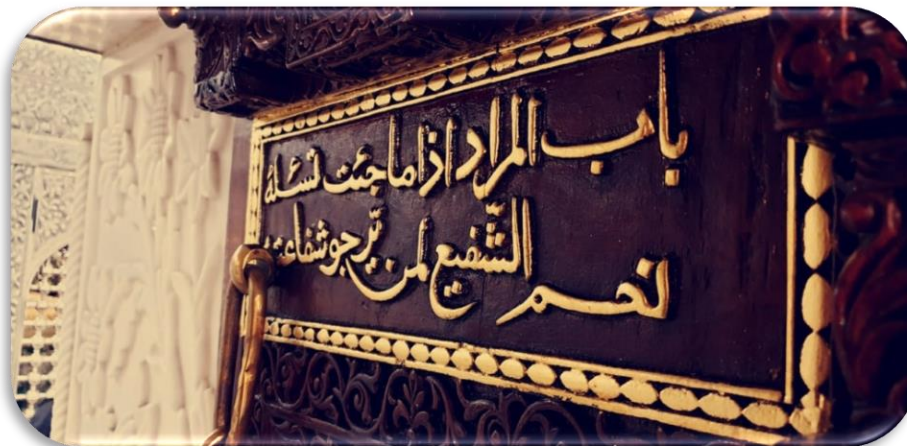 باب المراد اذا ما جئت تسئله
نعم الشفيع لمن يرجو شفاعته